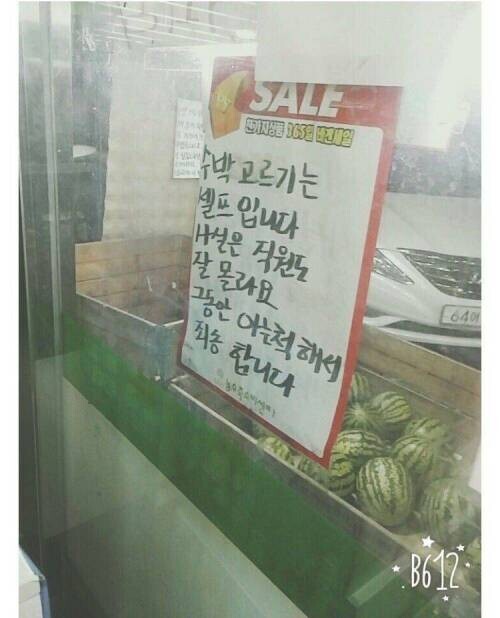 SALE
전가지상품 365일 바겐세일
수박 고르기는
셀프입니다
사실은 직원도
잘 몰라요
그동안 아는척해서
죄송합니다
64어
B612